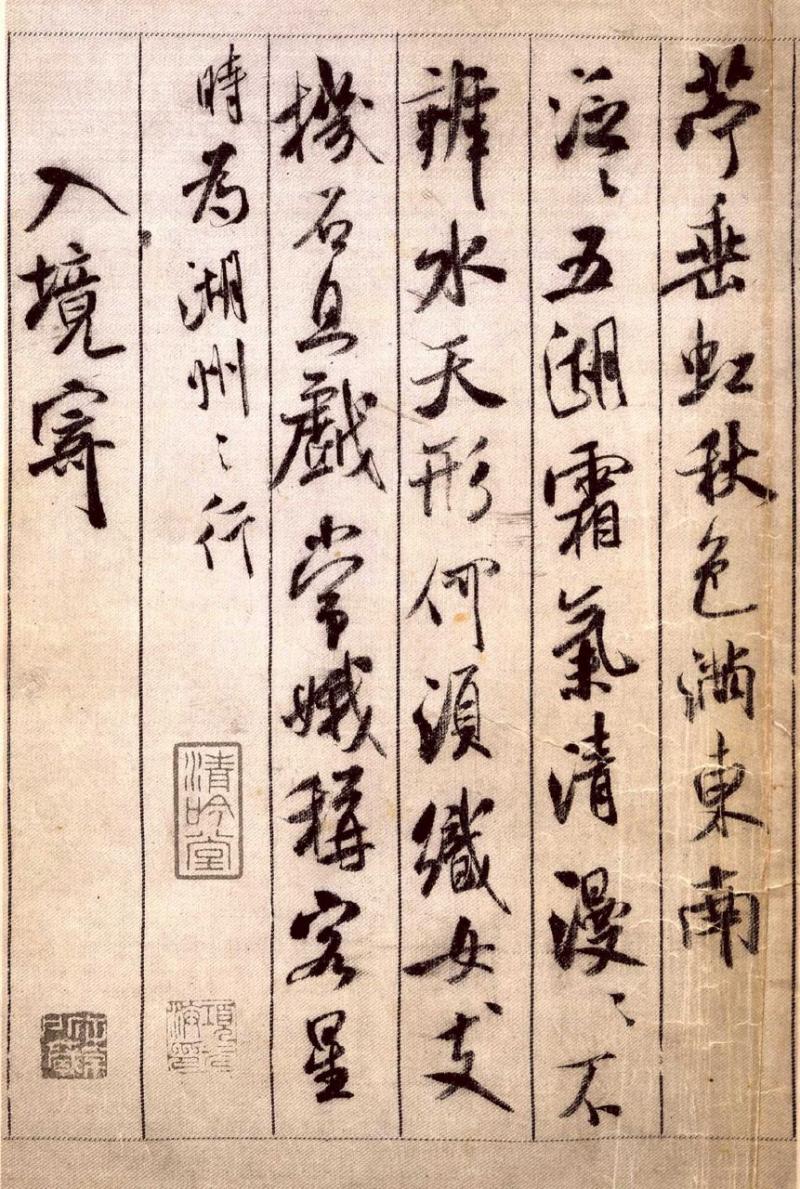 苧垂虹秋色滿東南
泛〻五湖霜氣清漫〻不
辨水天形何須織女支
機石且戲常娥稱客星
時為湖州〻行
入境寄
清吟堂